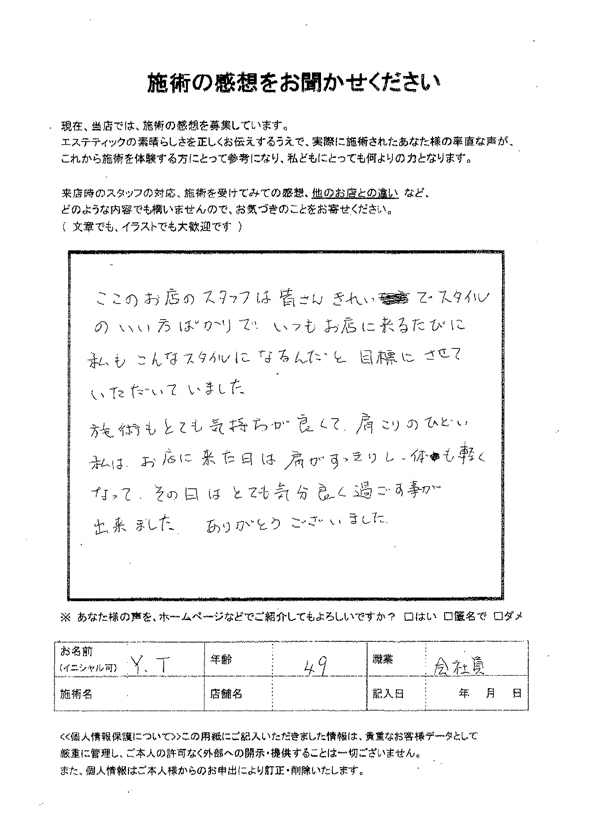 施術の感想をお聞かせください
現在、当店では、施術の感想を募集しています。
エステティックの素晴らしさを正しくお伝えするうえで、実際に施術されたあなた様の率直な声が、
これから施術を体験する方にとって参考になり、私どもにとっても何よりの力となります。
来店時のスタッフの対応、施術を受けてみての感想、他のお店との違い など、
どのような内容でも構いませんので、お気づきのことをお寄せください。
( 文章でも、イラストでも大歓迎です )
ここのお店のスタッフは皆さんきれいでスタイル
のいい方ばかりで いつもお店に来るたびに
私もこんなスタイルになるんだと目標にさせて
いただいていました
施術もとても気持ちが良くて、肩こりのひどい
私は、お店に来た日は肩がすっきりし、体も軽く
なって、その日はとても気分良く過ごす事が
出来ました ありがとうございました
※ あなた様の声を、ホームページなどでご紹介してもよろしいですか? □はい □匿名で □ダメ
お名前 (イニシャル可) Y.T 年齢 49 職業 会社員
施術名 店舗名 記入日 年 月 日
<<個人情報保護について>>この用紙にご記入いただきました情報は、貴重なお客様データとして
厳重に管理し、ご本人の許可なく外部への開示・提供することは一切ございません。
また、個人情報はご本人様からのお申出により訂正・削除いたします。